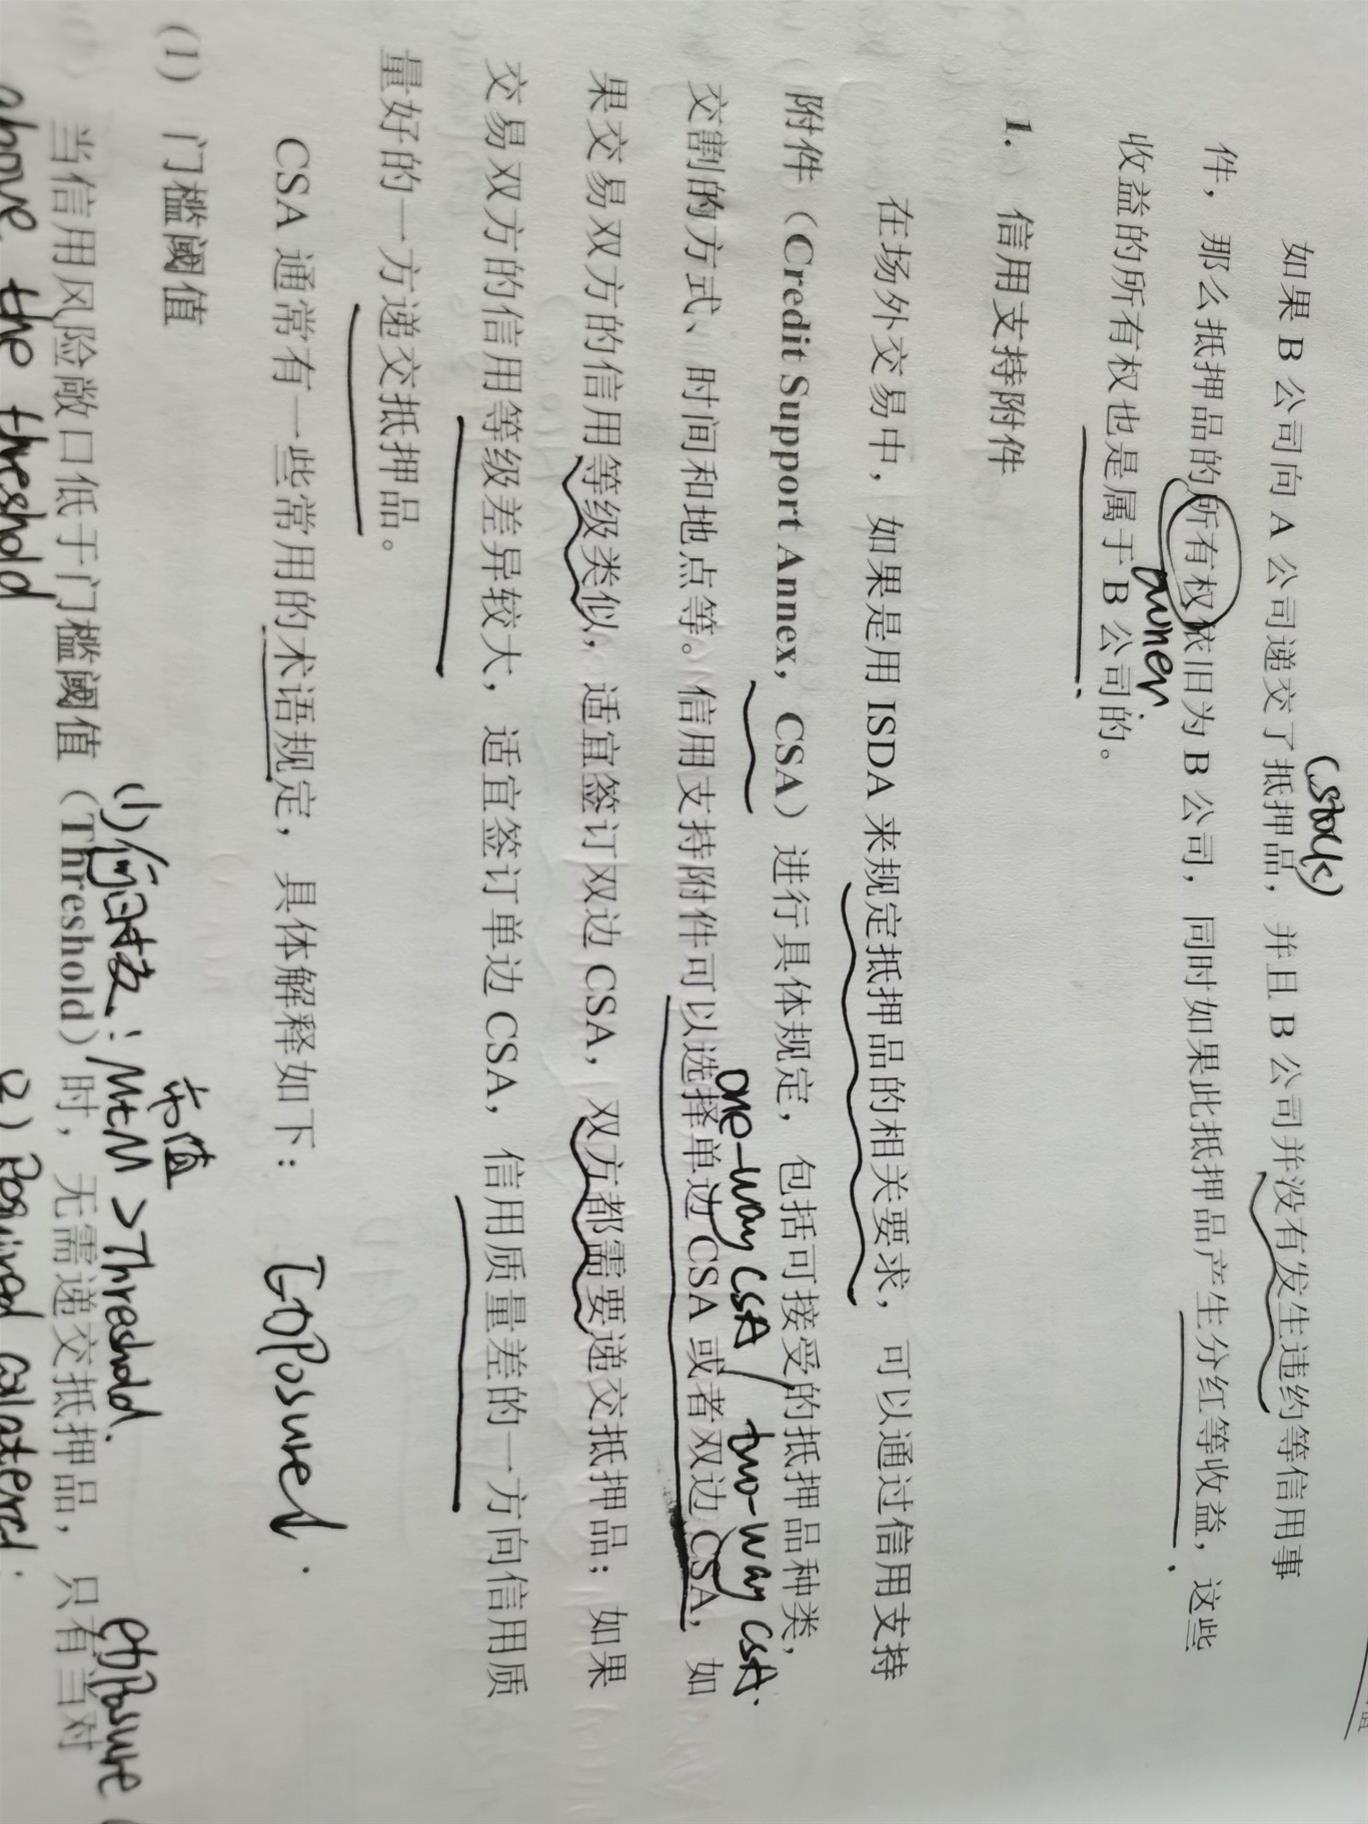 (stock)
如果 B 公司向 A 公司递交了抵押品，并且 B 公司并没有发生违约等信用事
件，那么抵押品的所有权依旧为 B 公司，同时如果此抵押品产生分红等收益，这些
owner
收益的所有权也是属于 B 公司的。
1. 信用支持附件
在场外交易中，如果是用 ISDA 来规定抵押品的相关要求，可以通过信用支持
附件（Credit Support Annex，CSA）进行具体规定，包括可接受的抵押品种类，
one-way CSA / two-way CSA.
交割的方式、时间和地点等。信用支持附件可以选择单边 CSA 或者双边 CSA，如
果交易双方的信用等级类似，适宜签订双边 CSA，双方都需要递交抵押品；如果
交易双方的信用等级差异较大，适宜签订单边 CSA，信用质量差的一方向信用质
量好的一方递交抵押品。
CSA 通常有一些常用的术语规定，具体解释如下：
Exposure↓.
(1) 门槛阈值
市值
(1) 何时交：MtM > Threshold.
exposure
当信用风险敞口低于门槛阈值（Threshold）时，无需递交抵押品，只有当对
above the threshold
2) Required collateral: